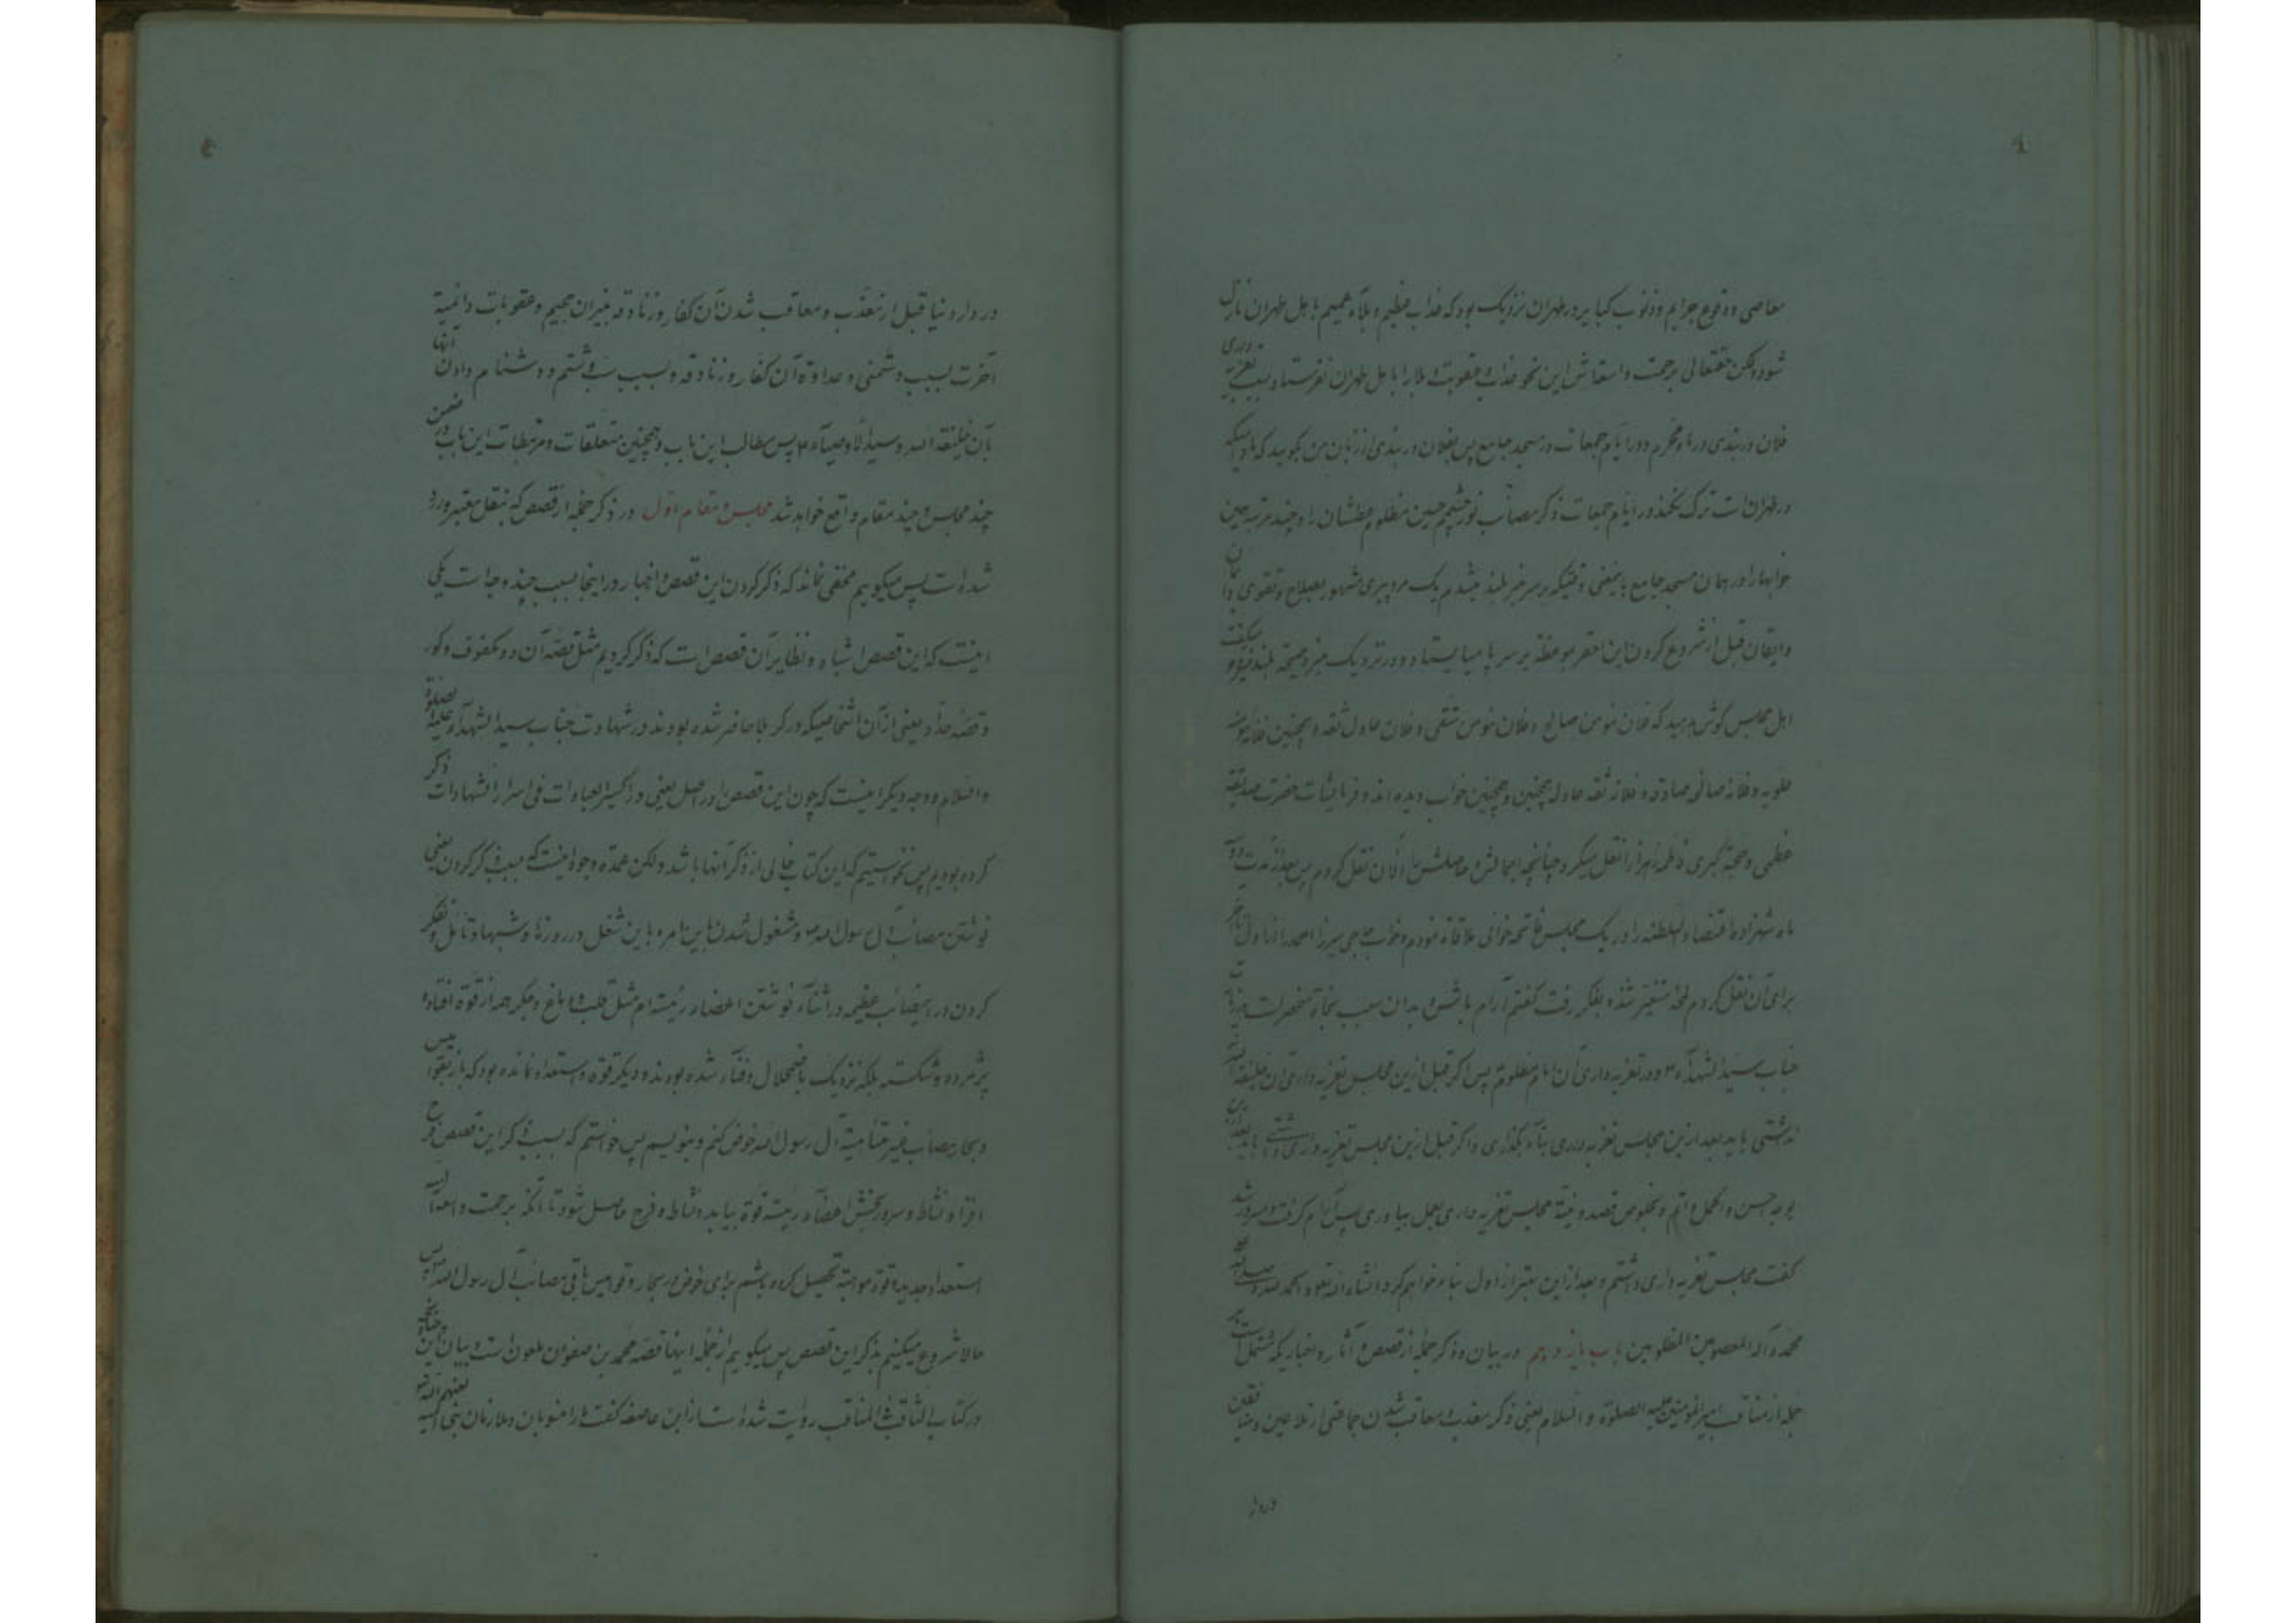 معاصی و وقوع جرایم و ذنوب کبایر در طهران نزدیک بود که عذاب عظیم و بلاء عمیم باهل طهران نازل
شود ولکن حقتعالی برحمت واسعه‌اش این نحو عذاب و عقوبت و بلا را باهل طهران نفرستاد بسبب تعزیه‌داری
فلان دربندی در ماه محرم و در ایام جمعات در مسجد جامع پس بفلان دربندی از زبان من بکویید که مادامیکه
در طهران است ترک نکند در ایام جمعات ذکر مصائب نور چشمم حسین مظلوم عطشان را و چند مرتبه همین
خوابها را در همان مسجد جامع یعنی وقتیکه بر سر منبر بلند میشدم یک مرد پیری مشهور بصلاح و تقوی و ایمان
و ایقان قبل از شروع کردن این احقر بموعظه بر سر پا میایستاد و در نزدیک منبر و صیحه بلند میزد و میکفت
اهل مجلس کوش بدهید که فلان مؤمن صالح و فلان مؤمن متقی و فلان عادل ثقه و همچنین فلانه مؤمنه
علویه و فلانه صالحه صادقه و فلانه ثقه عادله چنین و چنین خواب دیده‌اند و فرمایشات حضرت صدیقه
عظمی و حجة کبری فاطمه زهرا را نقل میکرد چنانچه اجمالش و حاصلش را الان نقل کردم پس بعد از مدت دو
ماه شهزاده اعتضاد السلطنه را در یک مجلس فاتحه خوانی ملاقاة نمودم و خواب حاجی میرزا احمد را از اول تا آخر
برای آن نقل کردم متغیر شده بفکر رفت کفتم آرام باش و بدان سبب نجاة منحصر است
جناب سید الشهداء و در تعزیه داری آن امام مظلوم پس اکر قبل ازین مجلس تعزیه داری آن خلیفة الله
نداشتی باید بعد ازین مجلس تعزیه داری بناء بکذاری و اکر قبل ازین مجلس تعزیه داری داشتی باید بعد ازین
بوجه احسن و اکمل و اتم و بخلوص قصد و نیت مجلس تعزیه داری بعمل بیاوری پس آرام کرفت و مسرور شد
کفت مجلس تعزیه داری داشتم و بعد از این بهتر از اول بناء خواهم کرد انشاء الله تعالی و الحمد لله و صلی الله علی
محمد و آله المعصومین المظلومین باب یازدهم در بیان و ذکر جمله از قصص و آثار و اخباریکه مشتمل است بر
جمله از مناقب امیر المؤمنین علیه الصلوة و السلام یعنی ذکر معذب و معاقب شدن جماعتی از ملاعین و منافقین
در دار
در دار دنیا قبل از معذب و معاقب شدن آن کفار و زنادقه بنیران جحیم و عقوبات دائمیه
آخرت بسبب دشمنی و عداوة آن کفار و زنادقه و بسبب سب و شتم و دشنام دادن آنها
بآن خلیفة الله و سید الاوصیاء پس مطالب این باب و همچنین متعلقات و مرتبطات این باب در ضمن
چند مجلس و چند مقام واقع خواهد شد مجلس و مقام اول در ذکر جمله از قصص که بنقل معتبر ورود
شده است پس میکوییم مخفی نماند که ذکر کردن این قصص و اخبار در اینجا بسبب چند وجه است یکی
اینست که این قصص اشباه و نظایر آن قصص است که ذکر کردیم مثل قصه آن دو مکفوف و کور
و قصه حداد یعنی از آن اشخاصیکه در کربلا حاضر شده بودند در شهادت جناب سید الشهداء علیه الصلوة
والسلام و وجه دیکر اینست که چون این قصص را در اصل یعنی در اکسیر العبادات فی اسرار الشهادات ذکر
کرده بودیم پس نخواستیم که این کتاب خالی از ذکر آنها باشد ولکن عمده وجوه اینست که بسبب ذکر کردن یعنی
نوشتن مصائب آل رسول الله و مشغول شدن باین امر و باین شغل در روزها و شبها و تأمل و تفکر
کردن در مصائب عظیمه در اثناء نوشتن اعضاء رئیسه‌ام مثل قلب و دماغ و جکر همه از قوة افتاده
پژمرده و شکسته بلکه نزدیک باضمحلال و فناء شده بودند و دیکر قوة و استعداد نمانده بود که باز بقوامیس
و بحار مصائب غیر متناهیه آل رسول الله خوض کنم و بنویسم پس خواستم که بسبب ذکر این قصص فرح
افزا و نشاط و سرور بخش اعضاء رئیسه قوة بیاید و نشاط و فرح حاصل شود تا آنکه برحمت واسعه الهیه
استعداد جدید و قوة موهبتیه تحصیل کرده باشم برای خوض در بحار و قوامیس باقی مصائب آل رسول الله پس
حالا شروع میکنیم بذکر این قصص پس میکوییم از جمله اینها قصه محمد بن صفوان ملعون است و بیان این
در کتاب الثاقب فی المناقب روایت شده است از ابن عاصفه کفت ما را منویان و ملازمان بنی امیه لعنهم الله